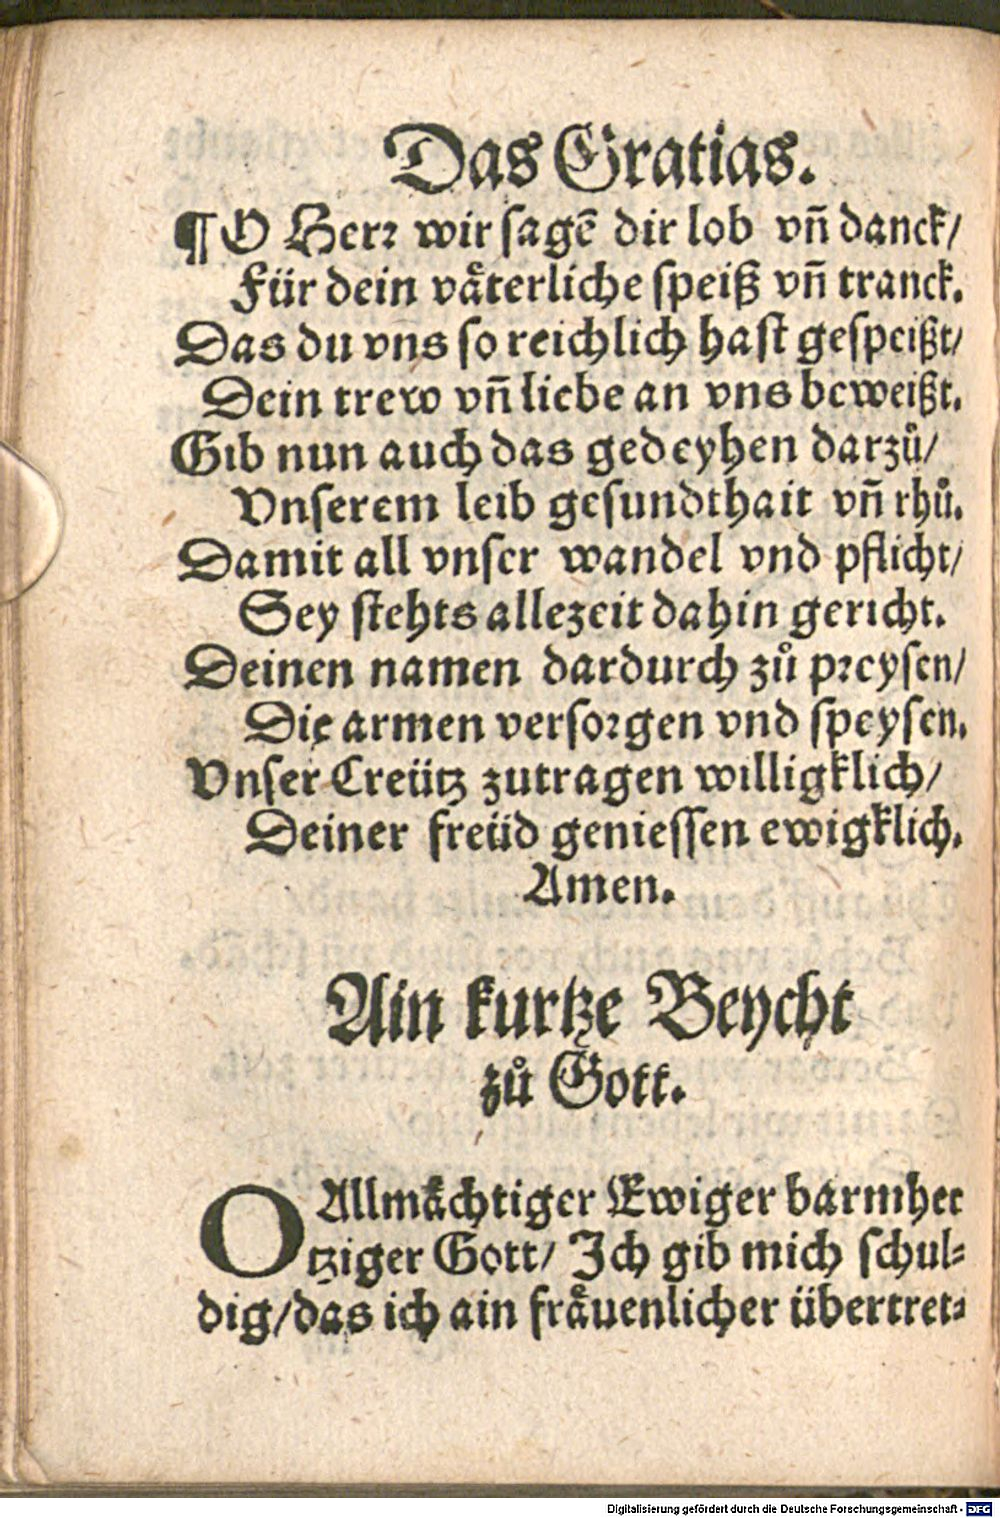 Das Gratias.
¶ O Herr wir sagē dir lob vñ danck/
Für dein vaͤterliche speiß vñ tranck.
Das du vns so reichlich hast gespeißt/
Dein trew vñ liebe an vns beweißt.
Gib nun auch das gedeyhen darzuͦ/
Vnserem leib gesundthait vñ rhuͦ.
Damit all vnser wandel vnd pflicht/
Sey stehts allezeit dahin gericht.
Deinen namen dardurch zuͦ preysen/
Die armen versorgen vnd speysen.
Vnser Creütz zutragen willigklich/
Deiner freüd geniessen ewigklich.
Amen.
Ain kurtze Beycht
zuͦ Gott.
O Allmaͤchtiger Ewiger barmher
tziger Gott/ Ich gib mich schul⸗
dig/das ich ain fraͤuenlicher übertret⸗
Digitalisierung gefördert durch die Deutsche Forschungsgemeinschaft - DFG